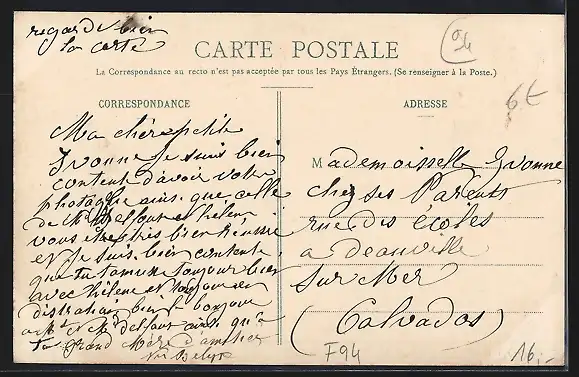 regarde bien
la carte
94
CARTE POSTALE
La Correspondance au recto n'est pas acceptée par tous les Pays Étrangers. (Se renseigner à la Poste.)
6€
CORRESPONDANCE
ADRESSE
Ma chère petite
Yvonne Je suis bien
contente d'avoir votre
photo que celle
de Delfour et helene
vous etes tres bien reussie
et Je suis bien contente
que tu tamuse toujour bien
avec hélène et toujour en
bien bonjour
Delfour que
ta Grand Mère
Mademoisselle Yvonne
chez ses Parents
rue des écoles
a deauville
sur Mer
(Calvados)
F94
16,-